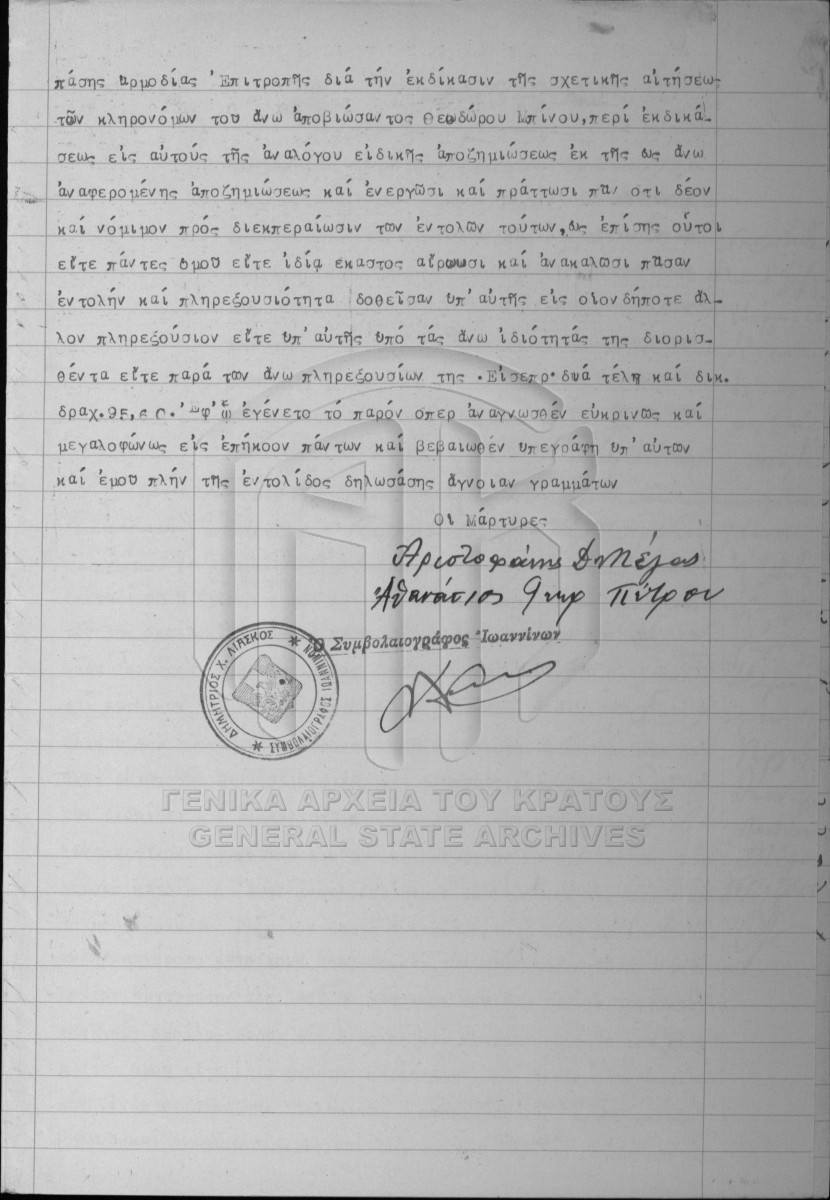 πάσης αρμοδίας Ἐπιτροπῆς διά τήν ἐκδίκασιν τῆς σχετικῆς αἰτήσεως
τῶν κληρονόμων του ἄνω ἀποβιώσαντος Θεοδώρου Μπίνου,περί ἐκδικά-
σεως εἰς αὐτούς τῆς ἀναλόγου εἰδικῆς ἀποζημιώσεως ἐκ τῆς ως ἄνω
ἀναφερομένης ἀποζημιώσεως καί ἐνεργῶσι καί πράττωσι πᾶν οτι δέον
καί νόμιμον πρός διεκπεραίωσιν των ἐντολῶν τούτων,ὡς ἐπίσης οὗτοι
εἴτε πάντες ὁμοῦ εἴτε ἰδίᾳ εκαστος αἴρωσι καί ἀνακαλῶσι πᾶσαν
ἐντολήν καί πληρεξουσιότητα δοθεῖσαν ὑπ'αὐτῆς εἰς οἱονδήποτε ἄλ-
λον πληρεξούσιον εἴτε υπ'αὐτῆς ὑπό τάς ἄνω ἰδιότητάς της διορισ-
θέντα εἴτε παρά των ἄνω πληρεξουσίων της.Εἰσεπρ.διά τέλη καί δικ.
δραχ.95,60.Ἐφ'ᾧ ἐγένετο τό παρόν οπερ ἀναγνωσθέν εὐκρινως καί
μεγαλοφώνως εἰς ἐπήκοον πάντων καί βεβαιωθέν υπεγράφη υπ'αὐτων
καί ἐμοῦ πλήν τῆς ἐντολίδος δηλωσάσης ἄγνοιαν γραμμάτων
Οι Μάρτυρες
Αριστοφάνης Δ Μέγας
Ἀθανάσιος Πέτρου
Ὁ Συμβολαιογράφος Ἰωαννίνων
ΔΗΜΗΤΡΙΟΣ Χ. ΛΙΑΣΚΟΣ * ΣΥΜΒΟΛΑΙΟΓΡΑΦΟΣ ΙΩΑΝΝΙΝΩΝ *
ΓΕΝΙΚΑ ΑΡΧΕΙΑ ΤΟΥ ΚΡΑΤΟΥΣ
GENERAL STATE ARCHIVES